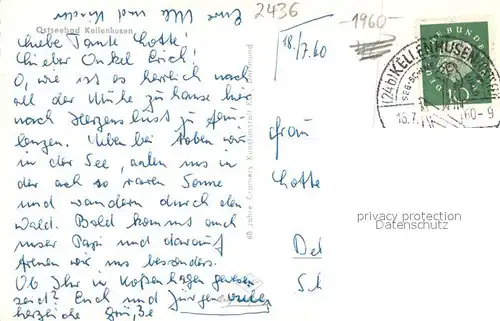 Eure Ule und Kinder
Ostseebad Kellenhusen
2436
-1960-
18./7.60
Liebe Tante Lotte!
Lieber Onkel Erich!
O, wie ist es herrlich nach
all der Mühe zu hause hier
nach Herzens lust zu faulenzen.
Eben bei toben wir
in der See, aalen uns in
der ach so raren Sonne
und wandern durch den
Wald. Bald kommt auch
unser Papi und darauf
freuen wir uns besonders.
Ob Ihr in Kopenhagen gewesen
seid? Euch und Jürgen
herzliche Grüße
60 Jahre Cramers Kunstanstalt KG Dortmund
Frau
Lotte
(24b) KELLENHUSEN
18.7.60-9
10
privacy protection
Datenschutz